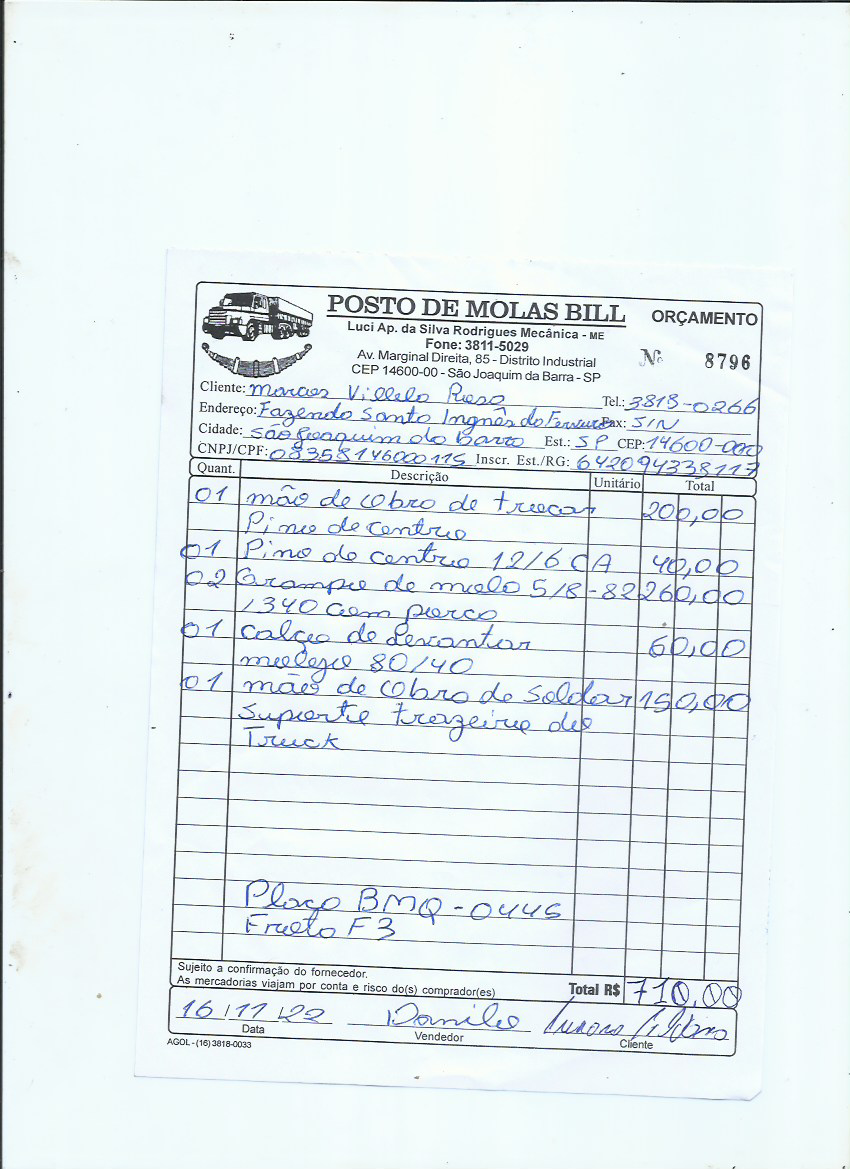 POSTO DE MOLAS BILL
ORÇAMENTO
Luci Ap. da Silva Rodrigues Mecânica - ME
Fone: 3811-5029
Av. Marginal Direita, 85 - Distrito Industrial
CEP 14600-00 - São Joaquim da Barra - SP
Nº 8796
Cliente: Villela Tel.: 3818-0266
Endereço: Fazenda Santo Fax: S/N
Cidade: São Joaquim da Barra Est.: SP CEP: 14600-000
CNPJ/CPF: 08358146000115 Inscr. Est./RG: 642094338117
Quant. Descrição Unitário Total
01 mão de obra de trocar 200,00
Pino de centro
01 Pino de centro 12/6 CA 40,00
02 Grampo de mola 5/8-82 260,00
/340 com porca
01 calço de levantar 60,00
molejo 80/40
01 mão de obra de soldar 150,00
Suporte trazeiro do
Truck
Placa BMQ-0445
Frota F3
Sujeito a confirmação do fornecedor.
As mercadorias viajam por conta e risco do(s) comprador(es)
Total R$ 710,00
16/11/22 Danilo
Data Vendedor Cliente
AGOL - (16) 3818-0033